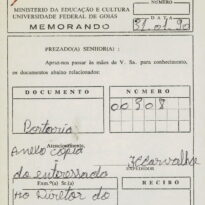 MINISTÉRIO DA EDUCAÇÃO E CULTURA
UNIVERSIDADE FEDERAL DE GOIÁS
MEMORANDO
NÚMERO
DATA
31.01.90
PREZADO(A) SENHOR(A) :
Apraz-nos passar às mãos de V. Sa. para conhecimento,
os documentos abaixo relacionados:
DOCUMENTO
NÚMERO
Portaria
Atenciosamente,
Anexo cópia
do
EXPEDIDOR
Exmo(a) Sr.(a)
RECIBO
Ao Diretor do